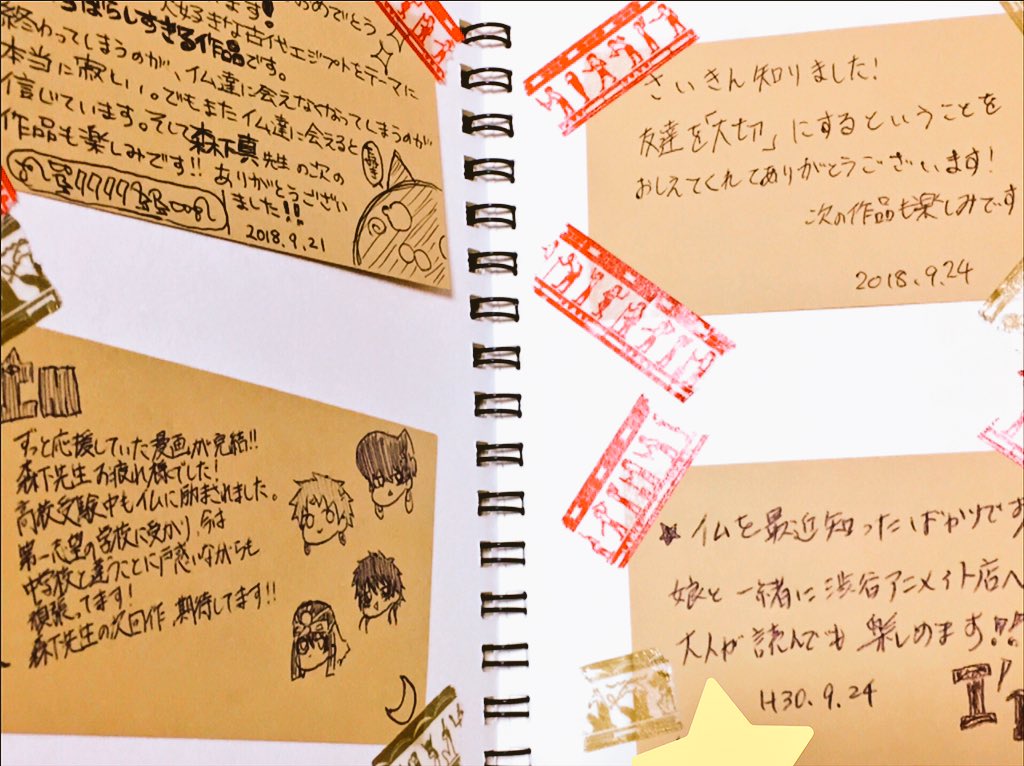 おめでとう
ます!
大好きな古代エジプトをテーマに
すばらしすぎる作品です。
終わってしまうのが、イム達に会えなくなってしまうのが
本当に寂しい。でもまたイム達に会えると
信じています。そして森下真先生の次の
作品も楽しみです!! ありがとうござい
ました!!
2018.9.21
ずっと応援していた漫画が完結!!
森下先生お疲れ様でした!
高校受験中もイムに励まされました。
第一志望の学校に受かり、今は
中学校と違うことに戸惑いながらも
頑張ってます!
森下先生の次回作、期待してます!!
さいきん知りました!
友達を「大切」にするということを
おしえてくれてありがとうございます!
次の作品も楽しみです
2018.9.24
★イムを最近知ったばかりです
娘と一緒に渋谷アニメイト店へ
大人が読んでも楽しめます!!
H30.9.24